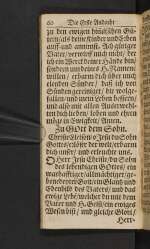 60 Die Erste Andacht
zu den ewigen himlischen Gü-
tern/als deine Kinder und Erben
auff und annimst. Ach gütiger
Vater/verwirff mich nicht/der
ich ein Werck deiner Hände bin/
sondern um deines H. Namens
willen/ erbarm dich über mich
elenden Sünder/ daß ich von
Sünden gereiniget/ dir wolge-
fallen/und mein Leben bessern/
und also mit allen Auserwehl-
ten dich lieben/ loben und ehren
möge in Ewigkeit/ Amen.
Zu GOtt dem Sohn.
Christe Eleison/o JEsu du Sohn
Gottes/erlöser der welt/erbarm
dich unser/ und erleuchte uns.
O Herr JEsu Christe/du Sohn
des lebendigen GOttes/ ein
warhafftiger/allmächtiger/ge-
bendeyter Gott/ein Glantz und
Ebenbild des Vaters/ und das
ewige Lebe/welcher du mit dem
Vater und H. Geist/ein ewiges
Wesen bist/ und gleiche Glori/
Herr-